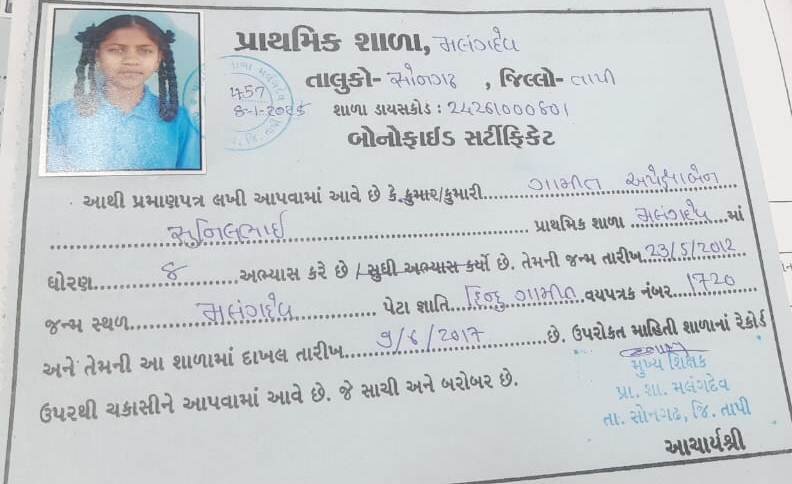 પ્રાથમિક શાળા, મલંગદેવ
તાલુકો- સોનગઢ , જિલ્લો- તાપી
457
8-1-2025
શાળા ડાયસકોડ : 24261000601
બોનોફાઈડ સર્ટીફિકેટ
આથી પ્રમાણપત્ર લખી આપવામાં આવે છે કે કુમાર/કુમારી ગામીત અપેક્ષાબેન
સુનિલભાઈ પ્રાથમિક શાળા મલંગદેવ માં
ધોરણ ૪ અભ્યાસ કરે છે / સુધી અભ્યાસ કર્યો છે. તેમની જન્મ તારીખ 23/5/2012
જન્મ સ્થળ મલંગદેવ પેટા જ્ઞાતિ હિન્દુ ગામીત વયપત્રક નંબર 1720
અને તેમની આ શાળામાં દાખલ તારીખ 9/6/2017 છે. ઉપરોકત માહિતી શાળાનાં રેકોર્ડ
ઉપરથી ચકાસીને આપવામાં આવે છે. જે સાચી અને બરોબર છે.
મુખ્ય શિક્ષક
પ્રા. શા. મલંગદેવ
તા. સોનગઢ, જિ. તાપી
આચાર્યશ્રી